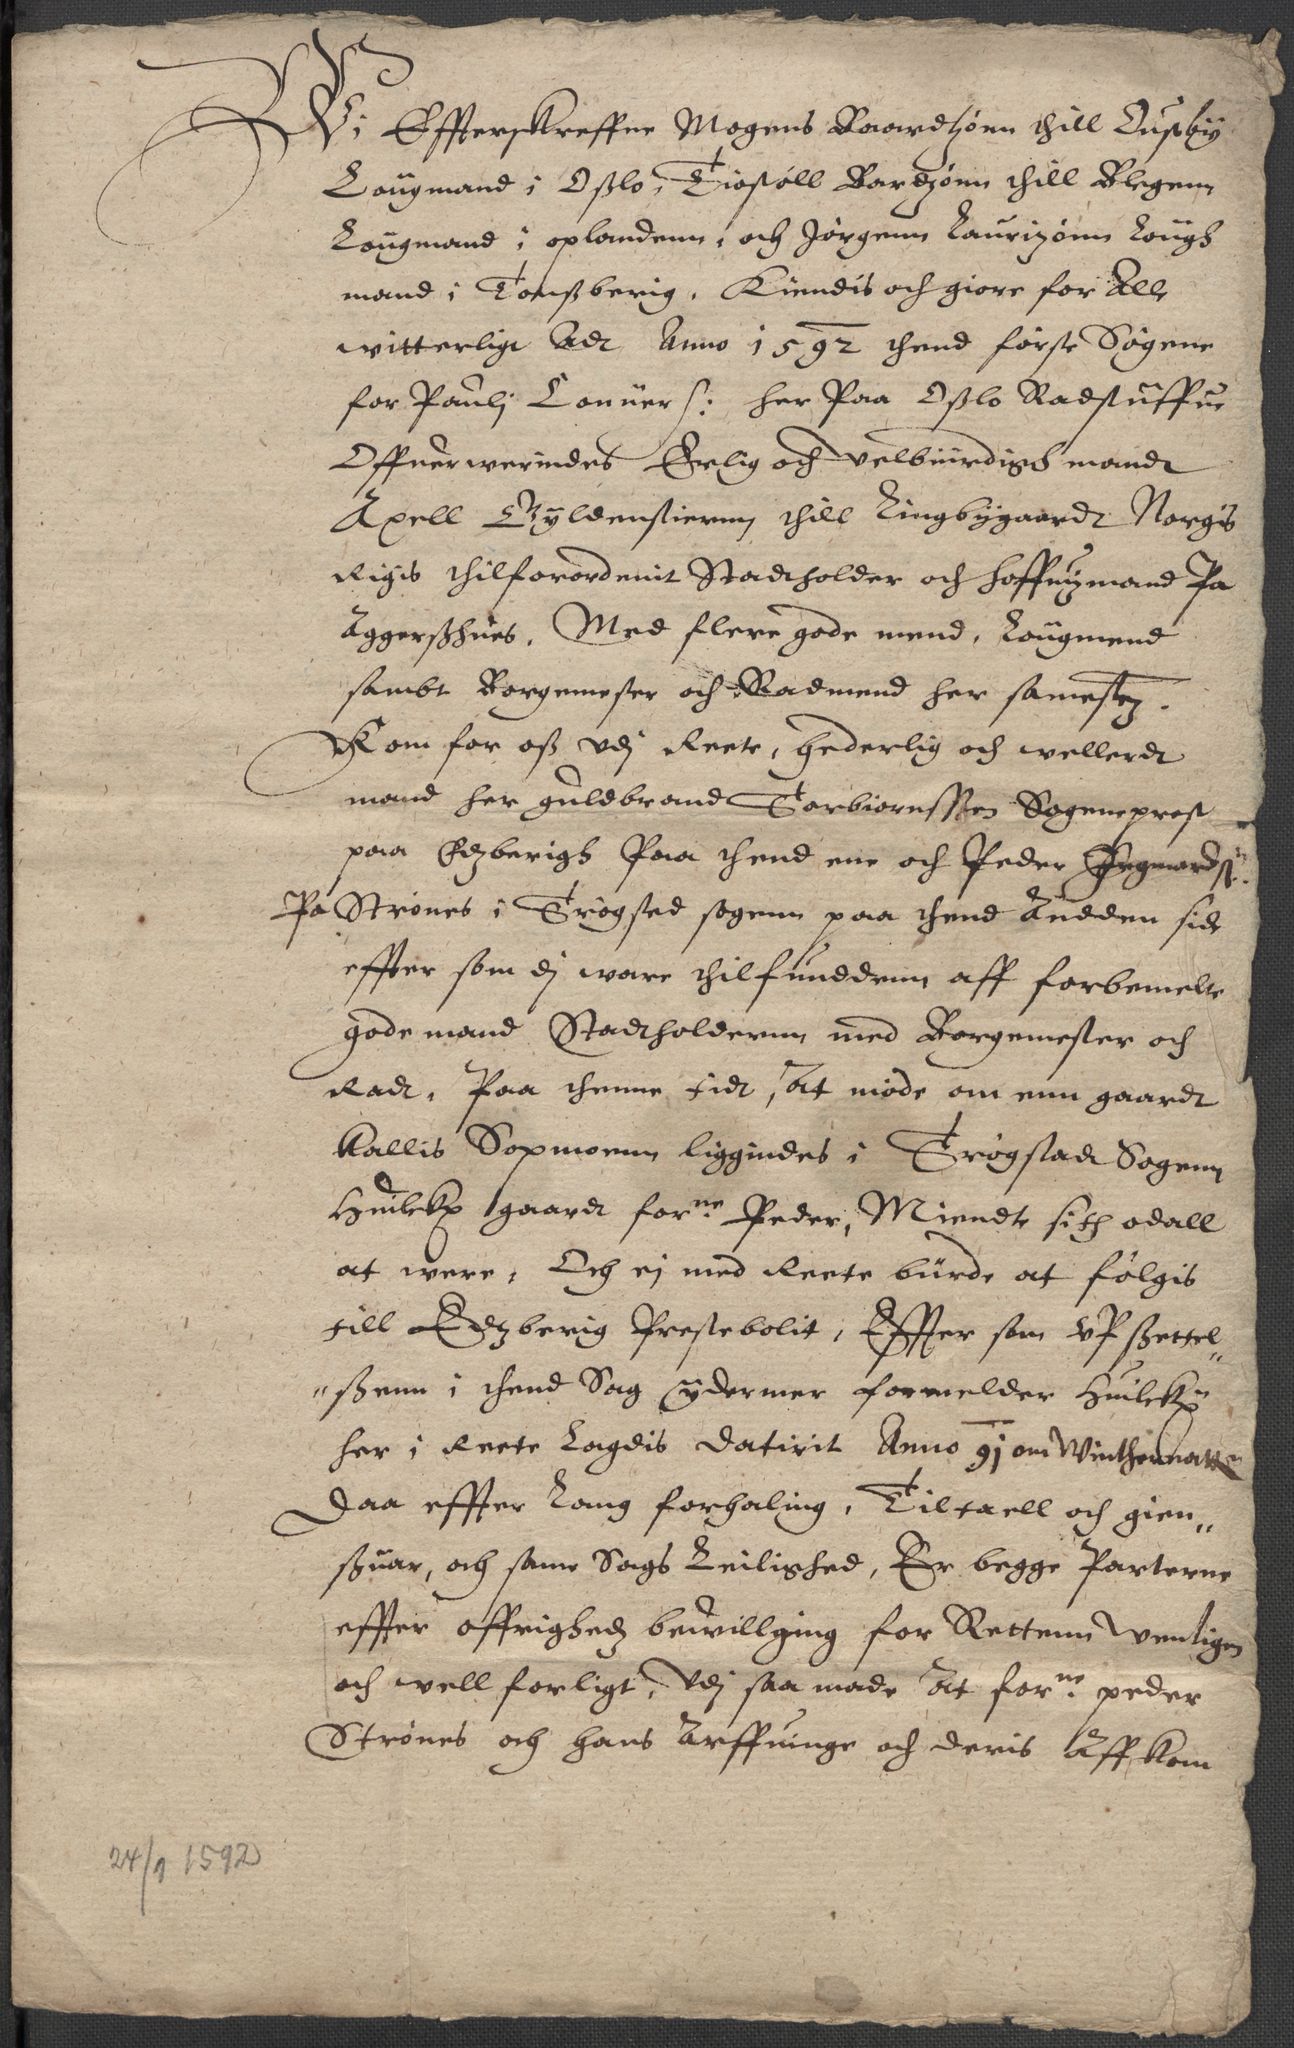 Wi Effterskreffne Mogens Baardzönn thill Ousby
Lougmand i Oßlo, Tiostöll Bardzönn thill Blegenn
Lougmand i oplandenn, och Jörgenn Laurizönn Lough
mand i Tonsberig, Kiendis och giöre for Alle
witterligt Adt Anno 1592 thend förste Sögene
for Paulj Conuers: her Paa Oßlo Radstuffue
Offuerwerindes Erlig och velbiurdigh mandt
Axell Gyldenstiernn thill Lingbygaardt Norgis
Rigis thilforordenit Stadtholder och hoffuizmand Pa
Aggerßhues, Med flere gode mend, Lougmend
sambt Borgemester och Radmend her samestez.
Kom for oß vdj Rette, hederlig och wellerdt
mand her guldbrand Torbiörnssen Sogneprest
paa Edzberigh Paa thend ene och Peder
Pa Strönes i Trögsted sogenn paa thend Andden side
effter som dj ware thilfunddenn aff forbemelte
gode mand Stadtholdernn med Borgemester och
Radt, Paa thenne tidt, At möde om enn gaardt
kallis Sopmoenn liggindes i Trögstadt Sogenn
Huilckenn gaardt forne Peder, Miendte sith odall
at were, Och ej med Rette bürde at fölgis
till Edzberig Prestebolit, Effter som vPßettel„
„ßenn i thend Sag ydermer formelder Huilckenn
her i Rette Lagdis datirit Anno 91 om Winthernatt
Daa effter Lang forhaling, Tiltaell och gien„
ßuar, och same Sags Leilighed, Er begge Parterne
effter öffrighedz bewillging for Rettenn wenligen
och well forligt, Vdj saa made At forne peder
Strönes och hans Arffuinge och deris Affkom
24/1 1592